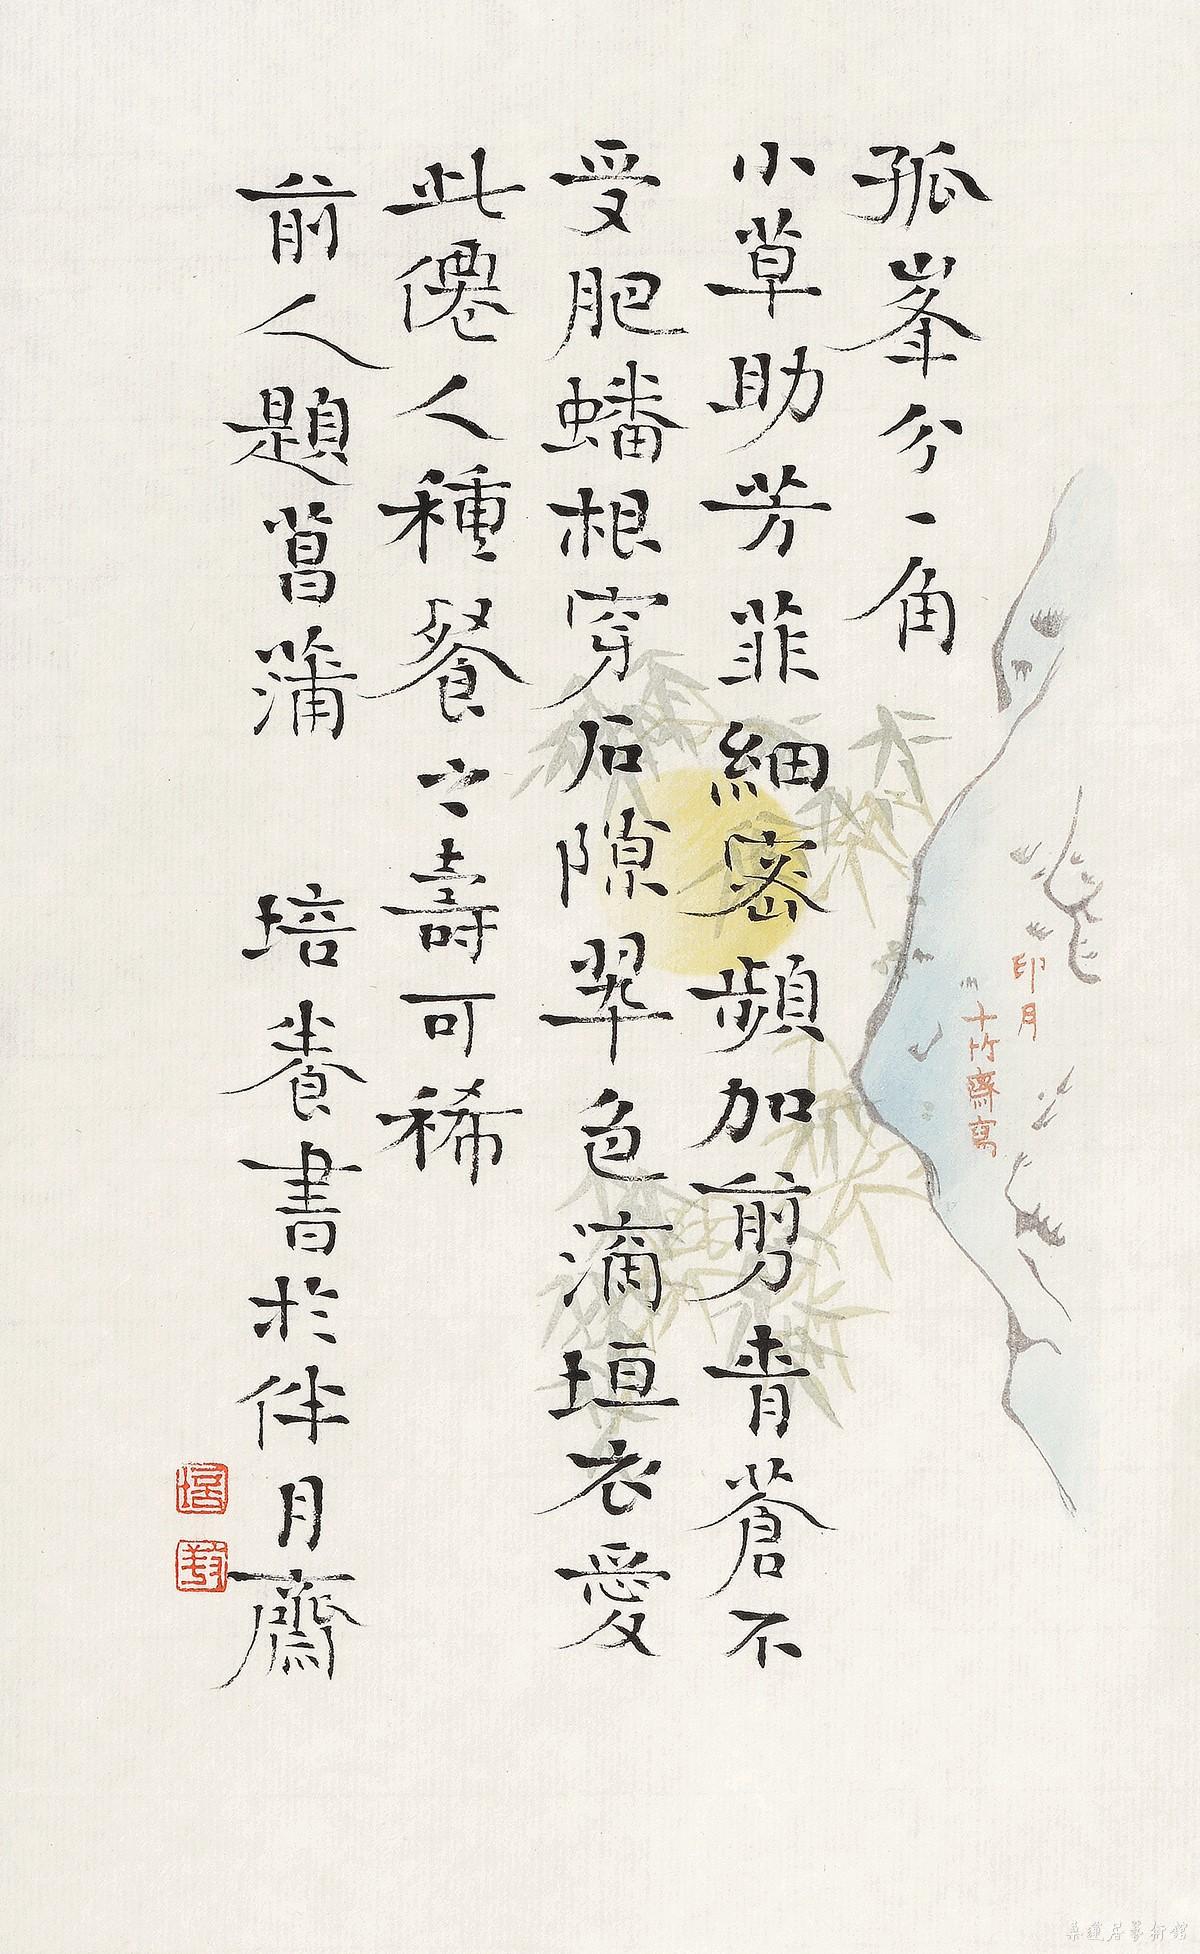 孤峯分一角
小草助芳菲細密頻加剪青蒼不
受肥蟠根穿石隙翠色滴垣衣愛
此僊人種餐之壽可稀
前人題菖蒲 培養書於伴月齋
印月
十竹齋寫
培